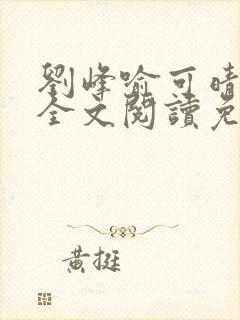 劉峰喻可晴
全文閱讀免
黃挺